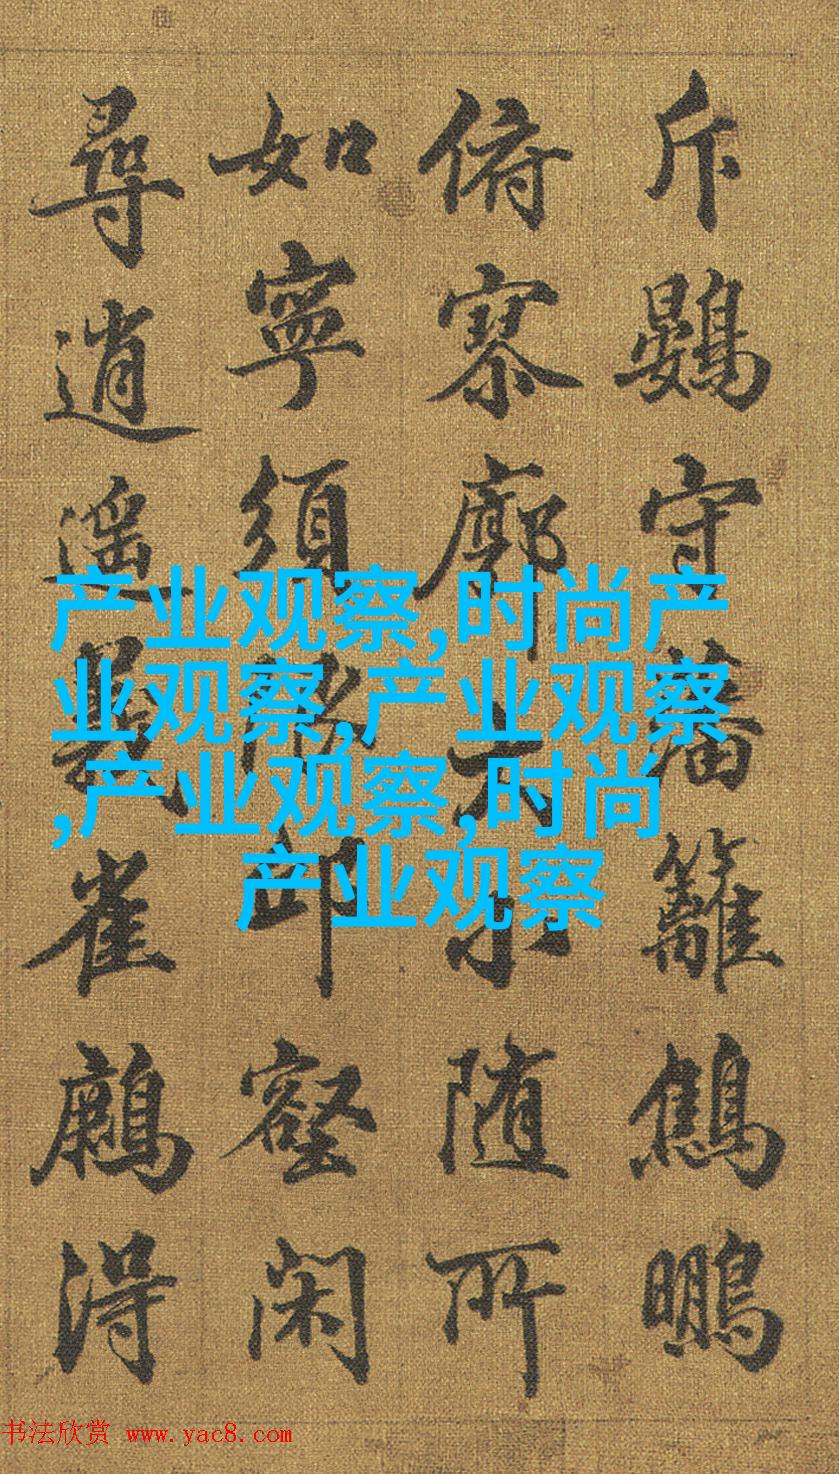 斥鷃守藩籬鷦䳟
俯寥廓大小随所
如寧須壑闲
尋逍遥雀得
产业观察,时尚产
业观察,产业观察
,产业观察,时尚
产业观察
书法欣赏 www.yac8.com